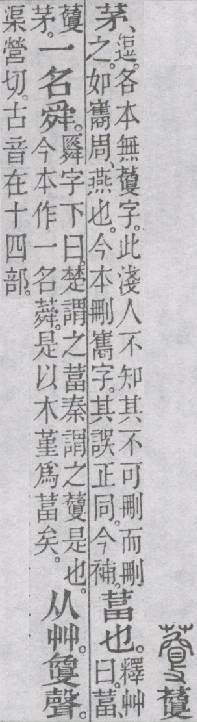 藑藑
茅、逗。各本無藑字。此淺人不知其不可刪而刪之。如巂周、燕也。今本刪巂字。其誤正同。今補。葍也。釋艸曰。葍、
藑茅。一名舜。䑞字下曰。楚謂之葍。秦謂之藑。是也。今本作一名蕣。是以木堇爲葍矣。从艸。夐聲。
渠營切。古音在十四部。